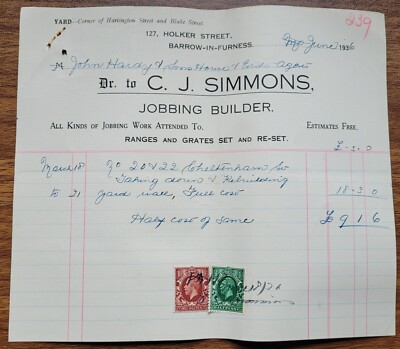 YARD—Corner of Hartington Street and Blake Street.
239
127, HOLKER STREET,
BARROW-IN-FURNESS,
June 1936
M John Hardy & Sons House & Estate Agents
Dr. to C. J. SIMMONS,
JOBBING BUILDER.
ALL KINDS OF JOBBING WORK ATTENDED TO.
ESTIMATES FREE.
RANGES AND GRATES SET AND RE-SET.
£ - s. D
March 18 No 20 & 22 Cheltenham St
Taking down & Rebuilding
to 21 yard wall, Full cost 18-3 0
Half cost of same £ 9 1 6